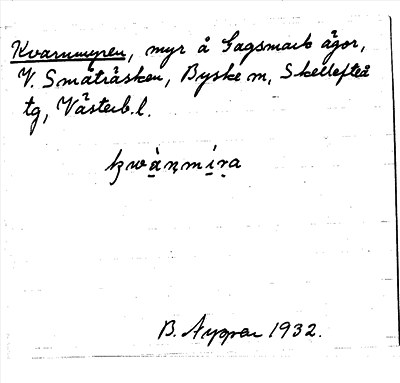 Kvarnmyren, myr å Gagsmark ägor,
V. Småträsken, Byske sn, Skellefteå
tg, Västerb.l.
B. Nygren 1932.